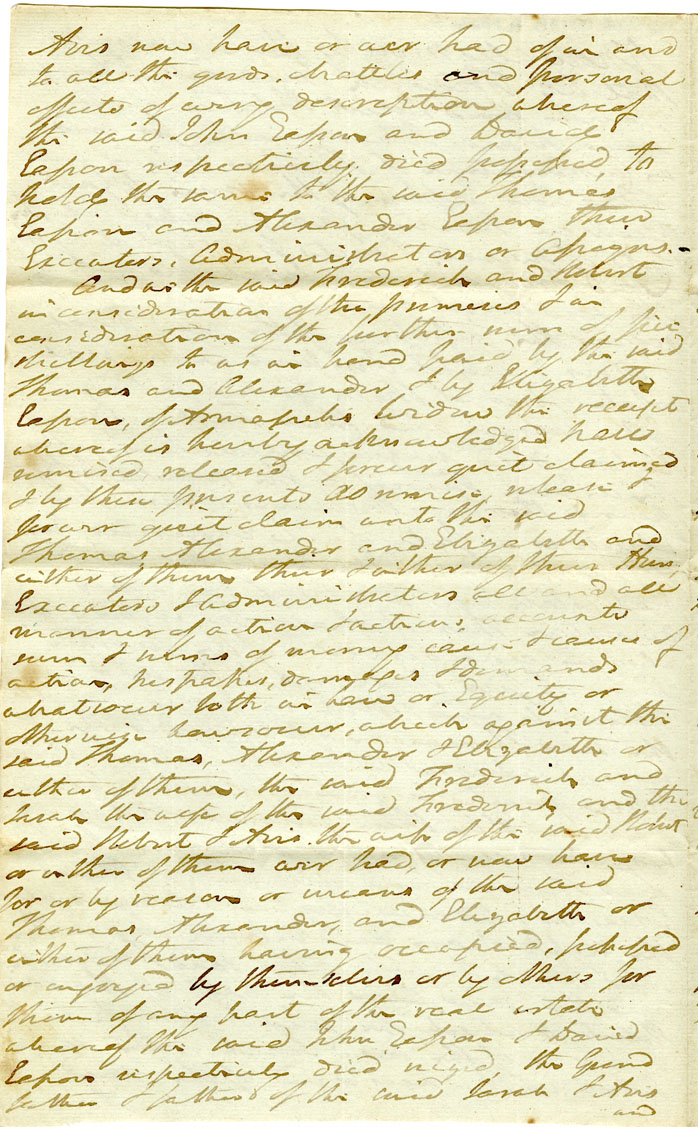 Avis now have or ever had of in and
to all the goods, chattles and personal
effects of every description whereof
the said John Easson and David
Easson respectively died possessed, to
hold the same to the said Thomas
Easson and Alexander Easson their
Executors, Administrators or Assigns.
And we the said Frederick and Robert
in consideration of the premises & in
consideration of the further sum of five
shillings to us in hand paid by the said
Thomas and Alexander & by Elizabeth
Easson, of Annapolis Widow the receipt
whereof is hereby acknowledged have
remised, released & forever quit claimed
& by these presents Do remise, release &
forever quit claim unto the said
Thomas Alexander and Elizabeth and
either of them their & either of their Heirs
Executors & Administrators all and all
manner of action & actions, accounts
sum & sums of money cause & causes of
action, trespasses, damages & demands
whatsoever both in Law or Equity or
otherwise howsoever, which against the
said Thomas, Alexander & Elizabeth or
either of them, the said Frederick and
Sarah the wife of the said Frederick and the
said Robert & Avis the wife of the said Robert
or either of them ever had, or now have
for or by reason or means of the said
Thomas Alexander, and Elizabeth or
either of them having occupied, possessed
or enjoyed by themselves or by others for
them of any part of the real estate
whereof the said John Easson & David
Easson respectively died seized, the Grand
father & father of the said Sarah & Avis
and